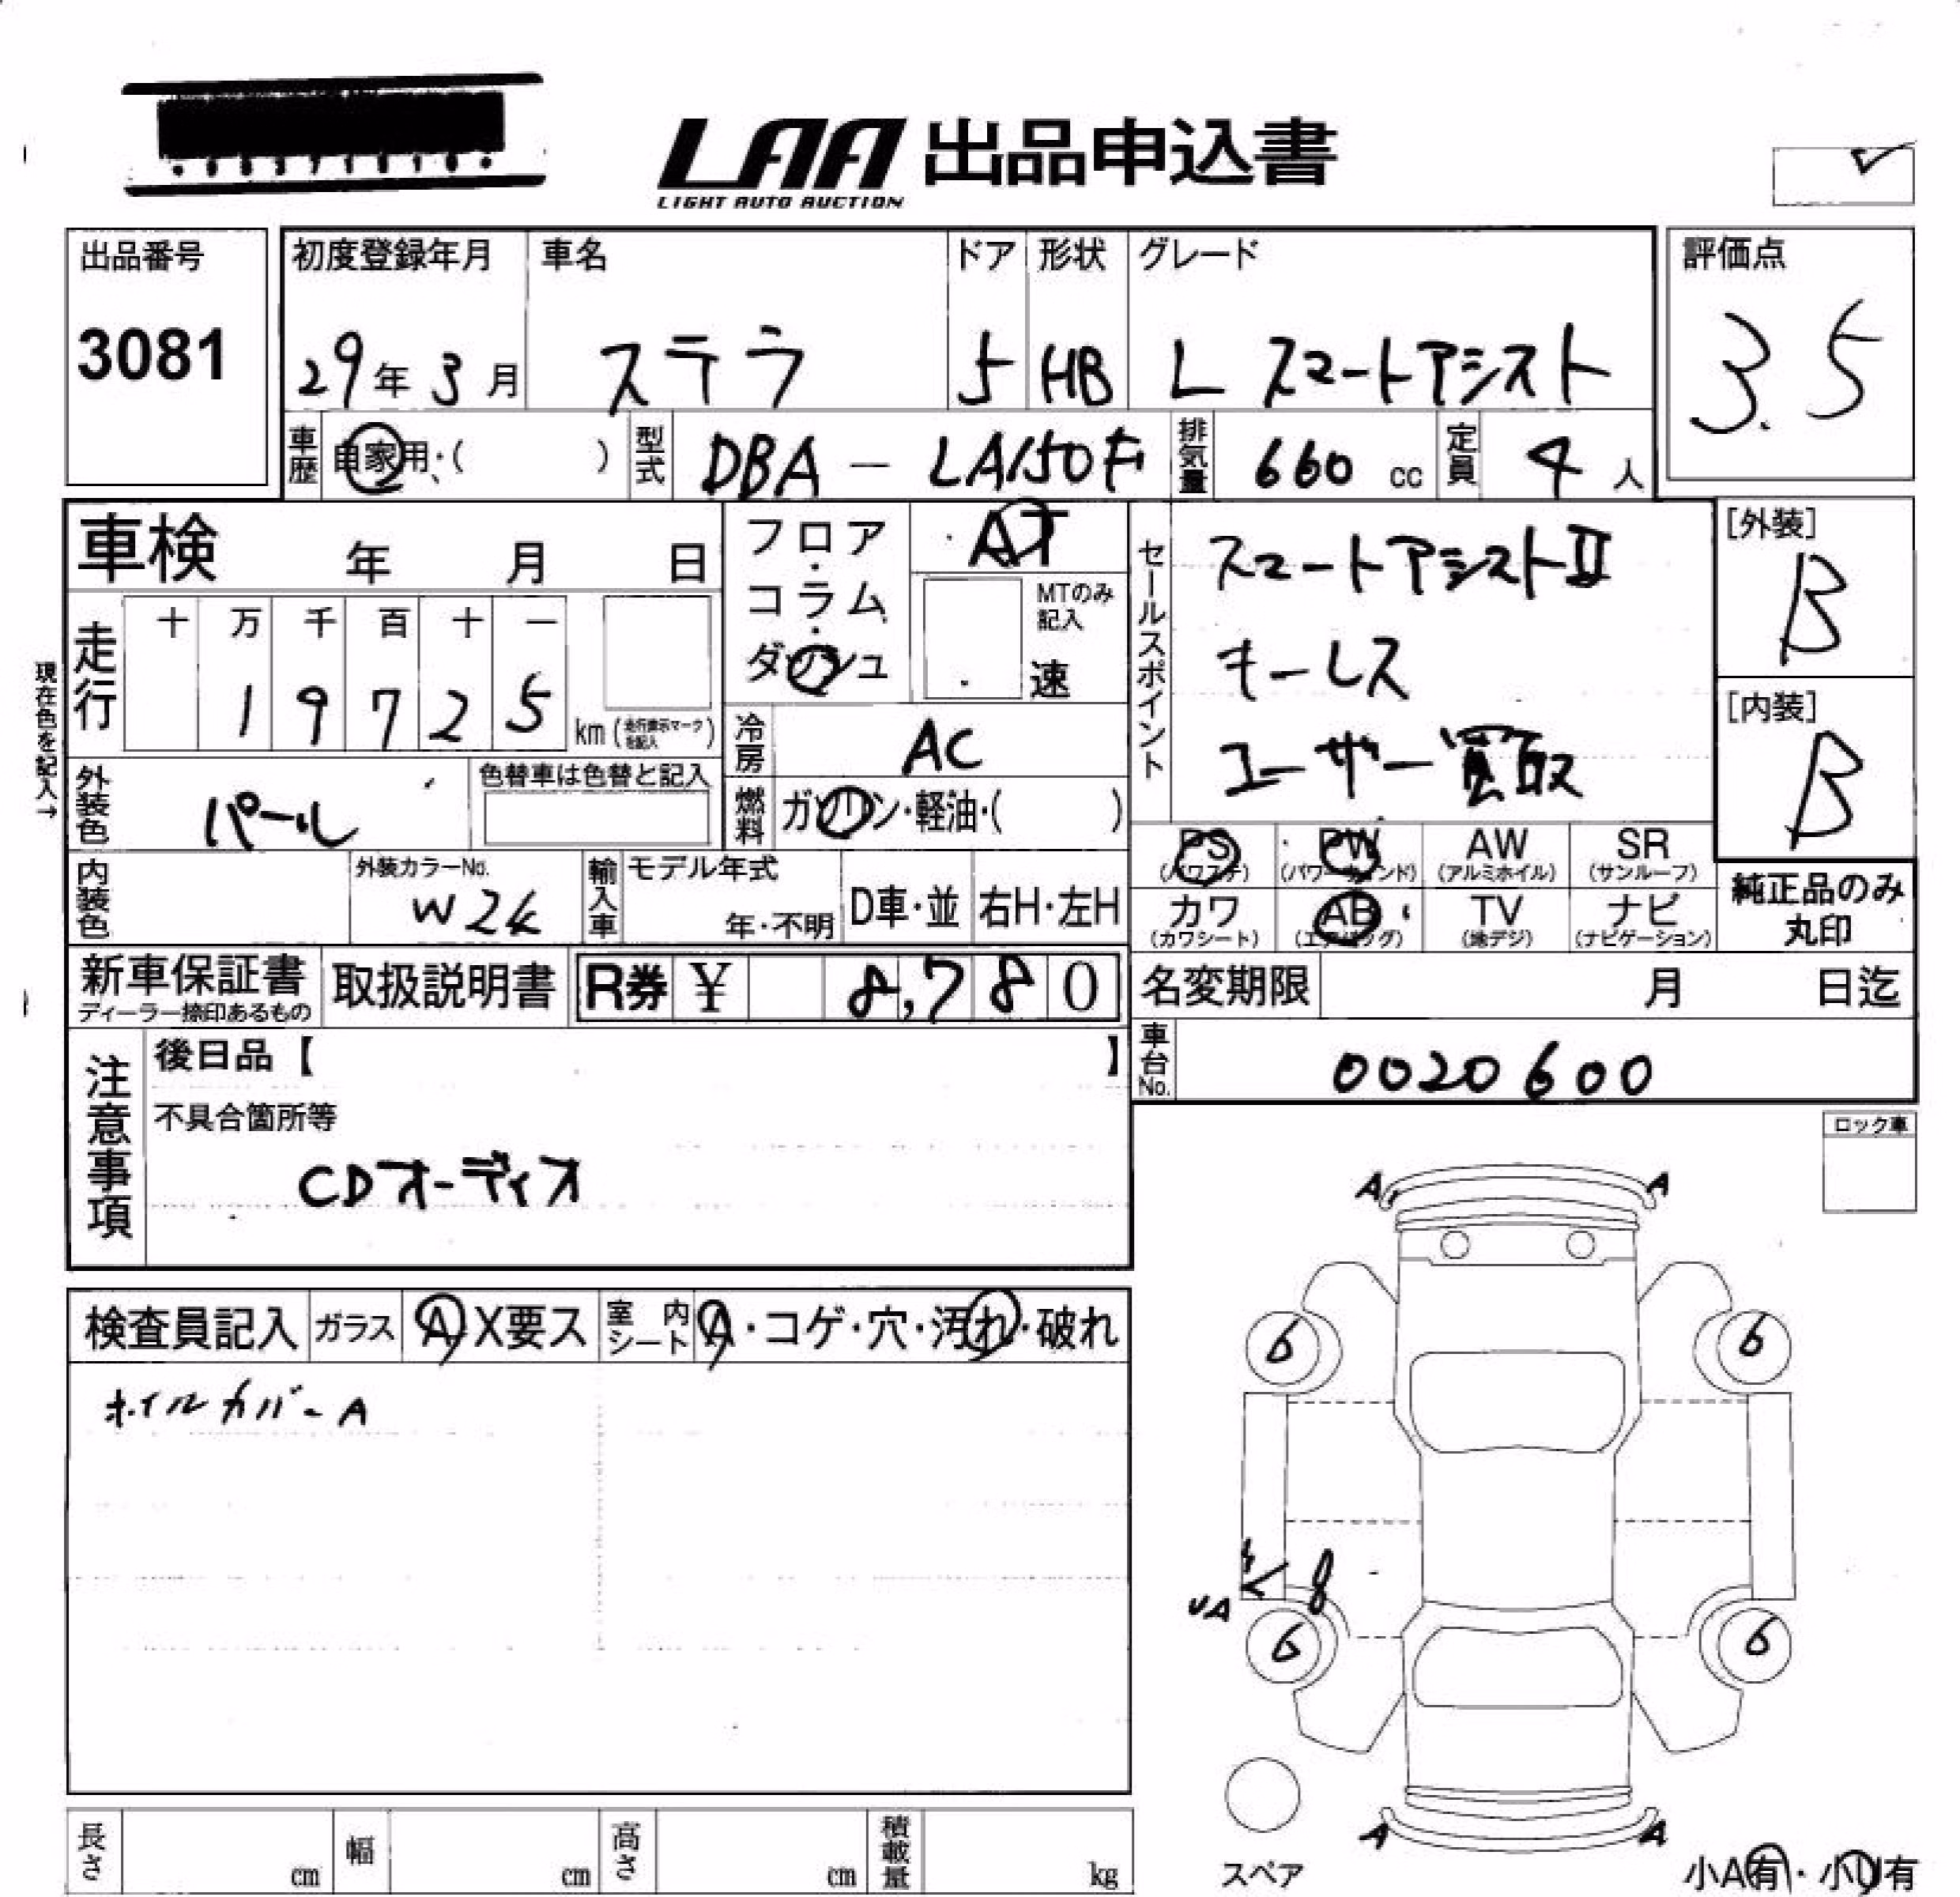 LAA 出品申込書
LIGHT AUTO AUCTION
出品番号
3081
初度登録年月
29年3月
車名
ステラ
ドア
5
形状
HB
グレード
L スマートアシスト
評価点
3.5
車歴
自家用・( )
型式
DBA - LA150F
排気量
660 cc
定員
4 人
車検 年 月 日
フロア・コラム・ダッシュ
AT
MTのみ記入
速
セールスポイント
スマートアシストⅡ
キーレス
ユーザー買取
[外装]
B
[内装]
B
現在色を記入→
走行
十 万 千 百 十 一
1 9 7 2 5
km (走行表示マークを記入)
冷房
AC
外装色
パール
色替車は色替と記入
燃料
ガソリン・軽油・( )
PS
(パワステ)
PW
(パワーウィンド)
AW
(アルミホイル)
SR
(サンルーフ)
カワ
(カワシート)
AB
(エアバッグ)
TV
(地デジ)
ナビ
(ナビゲーション)
純正品のみ
丸印
内装色
外装カラーNo.
W24
輸入車
モデル年式
年・不明
D車・並
右H・左H
新車保証書
ディーラー捺印あるもの
取扱説明書
R券 ¥ 8,780
名変期限 月 日迄
車台No.
0020600
注意事項
後日品【 】
不具合箇所等
CDオーディオ
ロック車
検査員記入
ガラス
A X要ス
室内シート
A・コゲ・穴・汚れ・破れ
ホイルカバーA
A A
6 6
UA
6 6
A A
スペア
小A有・小U有
長さ cm
幅 cm
高さ cm
積載量 kg